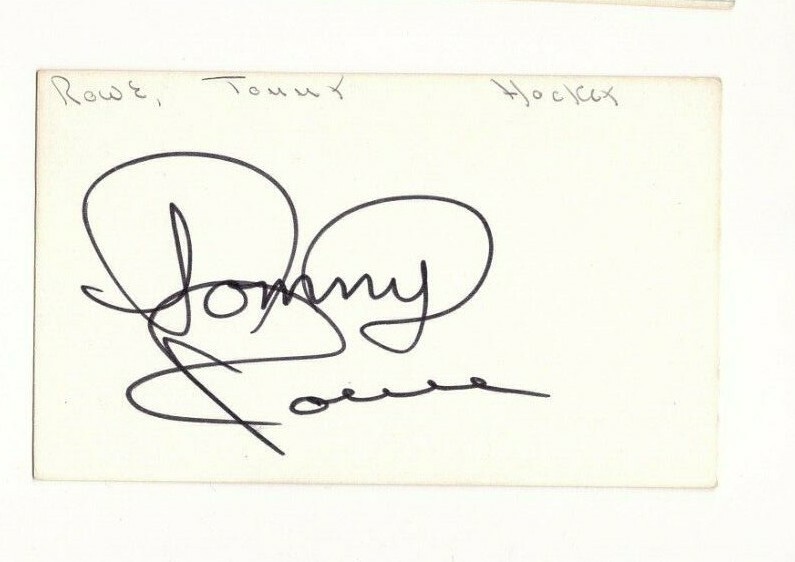 Rowe, Tommy Hockey
Tommy
Rowe